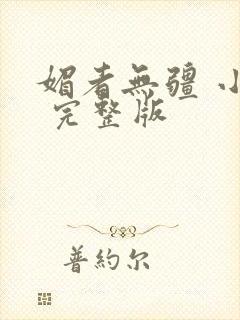 媚者無疆 小
完整版
普約尔